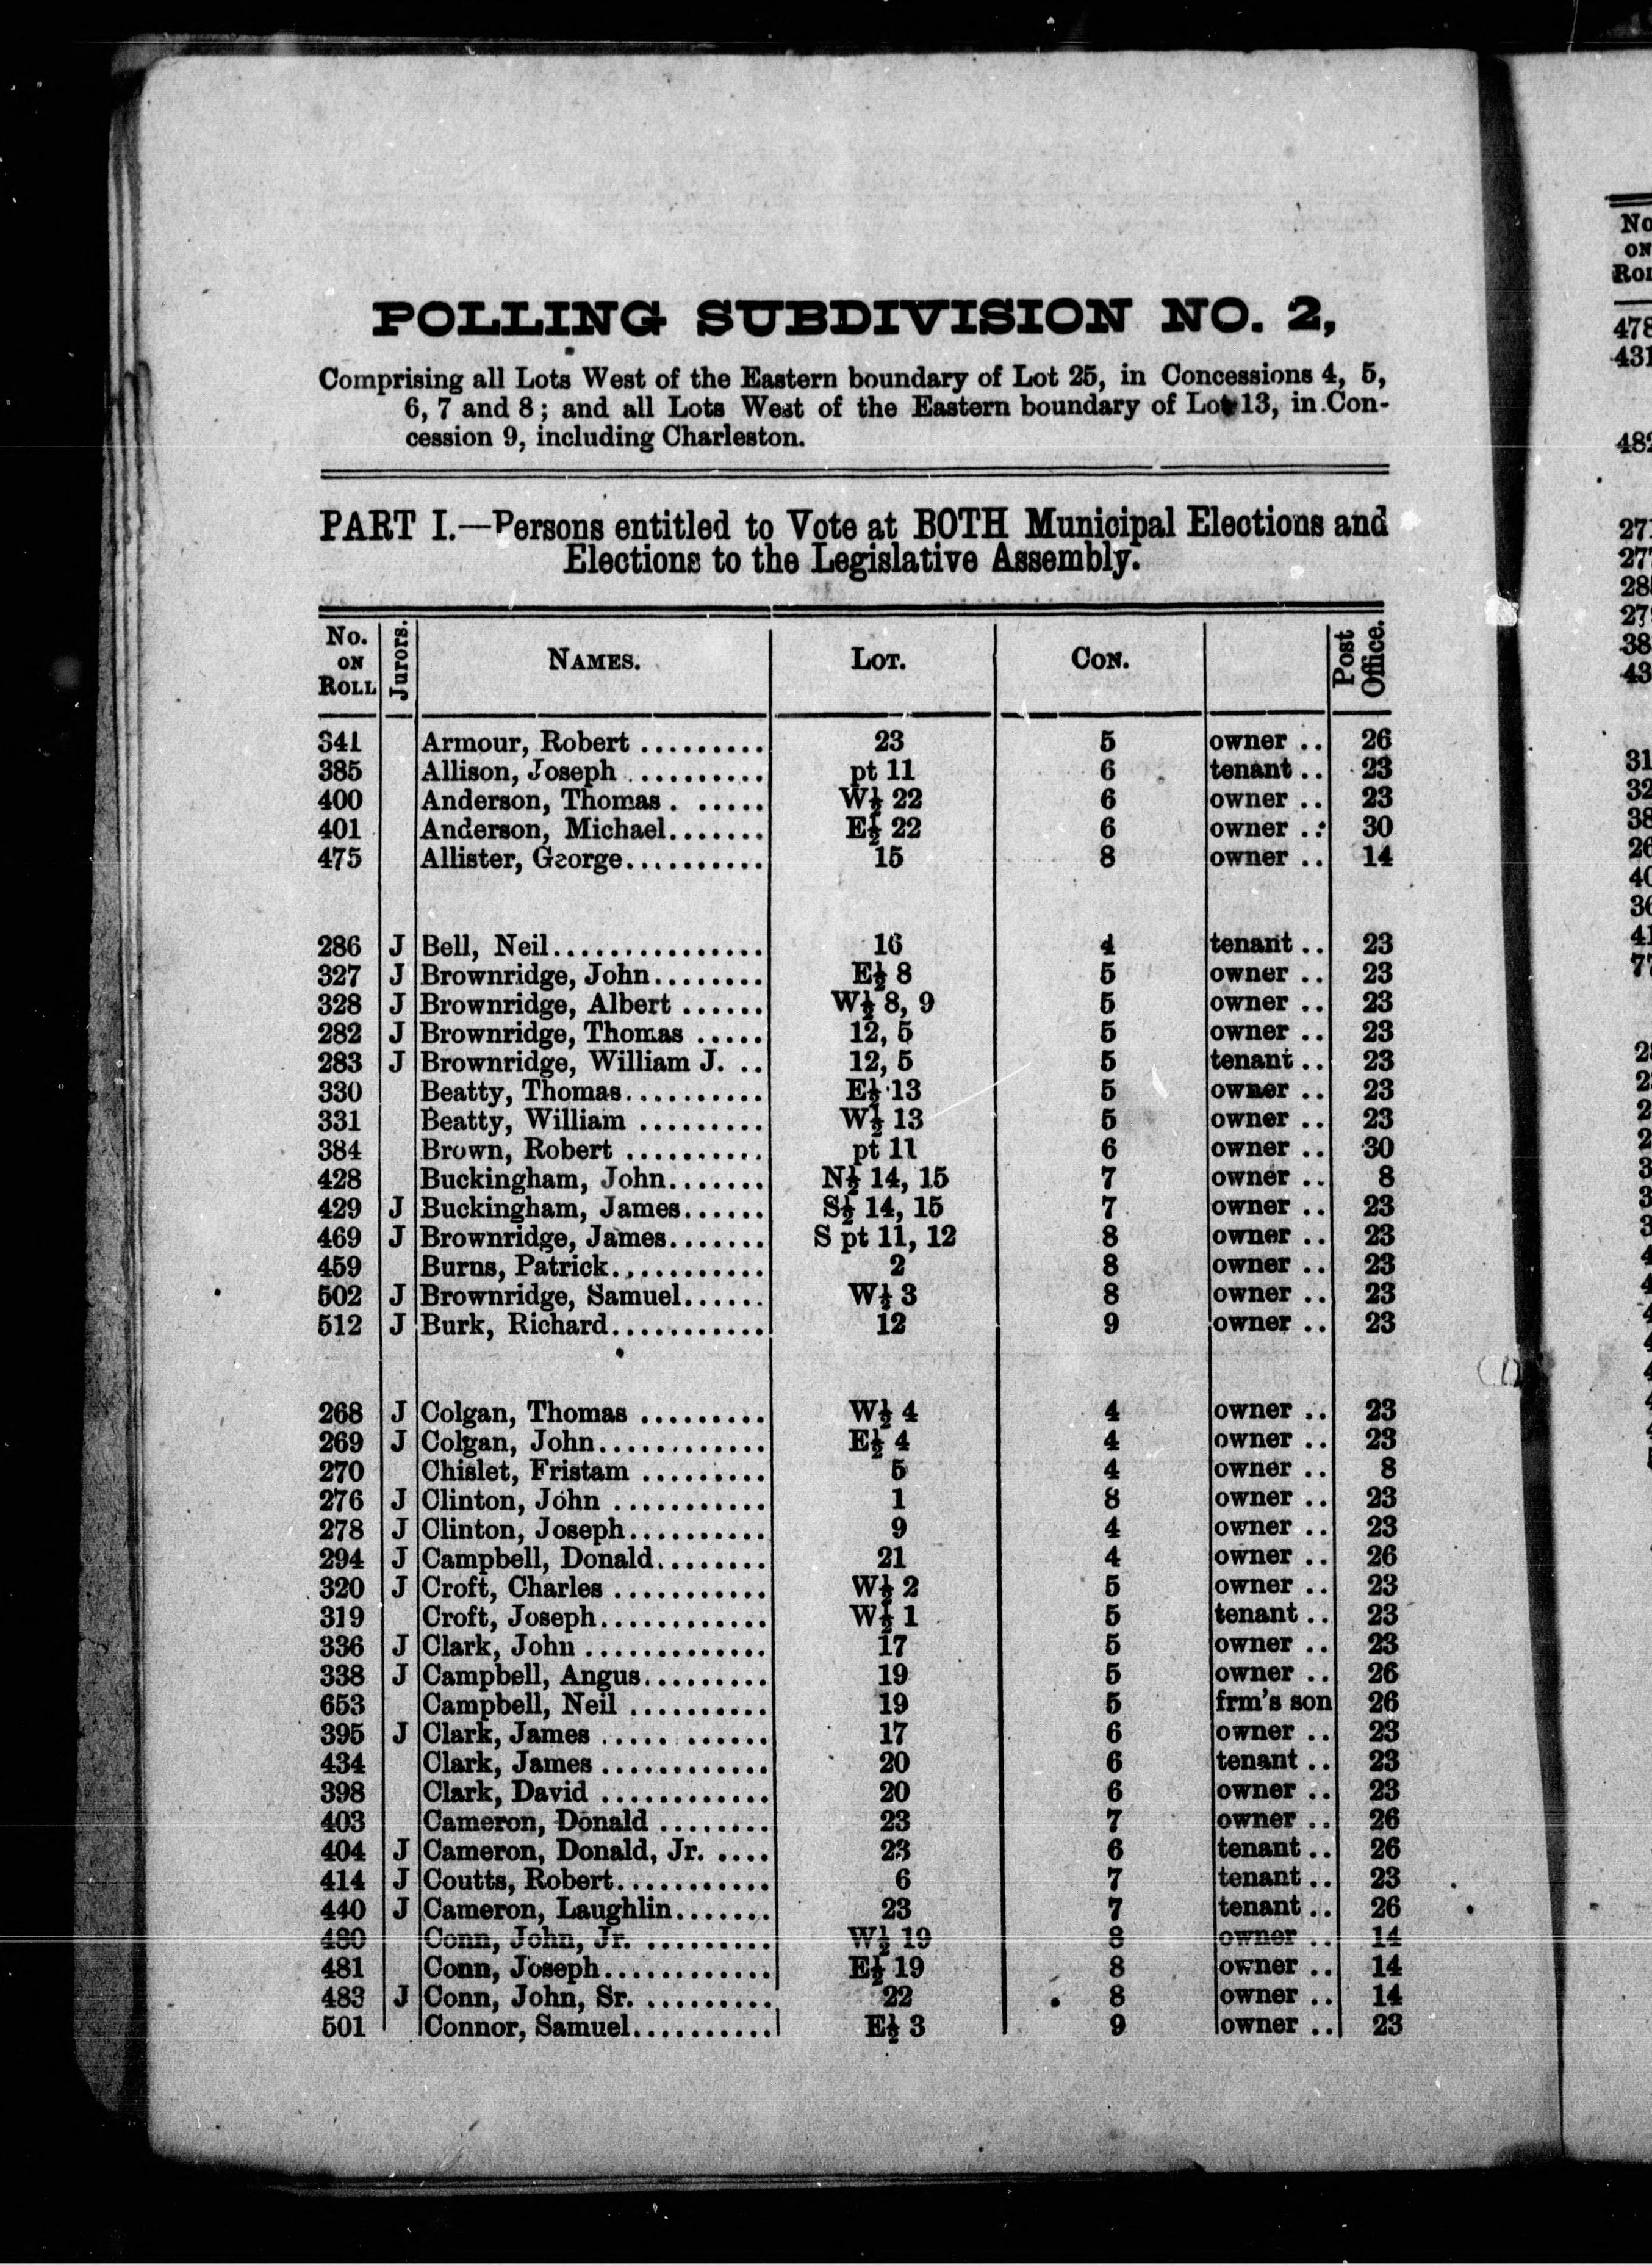 POLLING SUBDIVISION NO. 2,
Comprising all Lots West of the Eastern boundary of Lot 25, in Concessions 4, 5,
6, 7 and 8; and all Lots West of the Eastern boundary of Lot 13, in Con-
cession 9, including Charleston.
PART I.—Persons entitled to Vote at BOTH Municipal Elections and
Elections to the Legislative Assembly.
No. ON ROLL Jurors. NAMES. LOT. CON. Post Office.
341 Armour, Robert ......... 23 5 owner .. 26
385 Allison, Joseph .......... pt 11 6 tenant .. 23
400 Anderson, Thomas . ..... W½ 22 6 owner .. 23
401 Anderson, Michael....... E½ 22 6 owner .. 30
475 Allister, George.......... 15 8 owner .. 14
286 J Bell, Neil............... 16 4 tenant .. 23
327 J Brownridge, John........ E½ 8 5 owner .. 23
328 J Brownridge, Albert ...... W½ 8, 9 5 owner .. 23
282 J Brownridge, Thomas ..... 12, 5 5 owner .. 23
283 J Brownridge, William J. .. 12, 5 5 tenant .. 23
330 Beatty, Thomas.......... E½ 13 5 owner .. 23
331 Beatty, William ......... W½ 13 5 owner .. 23
384 Brown, Robert .......... pt 11 6 owner .. 30
428 Buckingham, John....... N½ 14, 15 7 owner .. 8
429 J Buckingham, James...... S½ 14, 15 7 owner .. 23
469 J Brownridge, James....... S pt 11, 12 8 owner .. 23
459 Burns, Patrick........... 2 8 owner .. 23
502 J Brownridge, Samuel...... W½ 3 8 owner .. 23
512 J Burk, Richard........... 12 9 owner .. 23
268 J Colgan, Thomas ......... W½ 4 4 owner .. 23
269 J Colgan, John............ E½ 4 4 owner .. 23
270 Chislet, Fristam ......... 5 4 owner .. 8
276 J Clinton, John ........... 1 8 owner .. 23
278 J Clinton, Joseph.......... 9 4 owner .. 23
294 J Campbell, Donald........ 21 4 owner .. 26
320 J Croft, Charles ........... W½ 2 5 owner .. 23
319 Croft, Joseph............ W½ 1 5 tenant .. 23
336 J Clark, John ............. 17 5 owner .. 23
338 J Campbell, Angus......... 19 5 owner .. 26
653 Campbell, Neil .......... 19 5 frm's son 26
395 J Clark, James ............ 17 6 owner .. 23
434 Clark, James ............ 20 6 tenant .. 23
398 Clark, David ............ 20 6 owner .. 23
403 Cameron, Donald ........ 23 7 owner .. 26
404 J Cameron, Donald, Jr. .... 23 6 tenant .. 26
414 J Coutts, Robert........... 6 7 tenant .. 23
440 J Cameron, Laughlin....... 23 7 tenant .. 26
480 Conn, John, Jr. ......... W½ 19 8 owner .. 14
481 Conn, Joseph............ E½ 19 8 owner .. 14
483 J Conn, John, Sr. ......... 22 8 owner .. 14
501 Connor, Samuel.......... E½ 3 9 owner .. 23